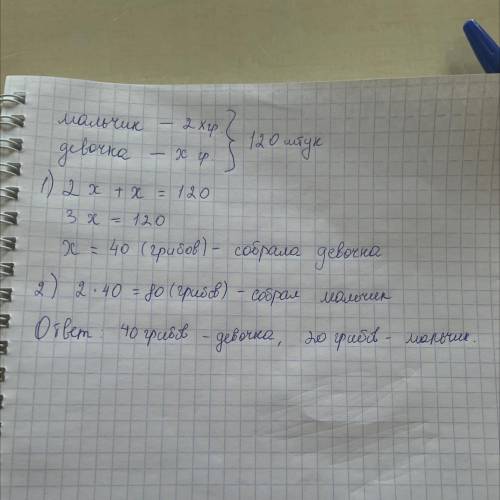 мальчик – 2х гр } 120 штук
девочка – х гр
1) 2 х + х = 120
3 х = 120
х = 40 (грибов) – собрала девочка
2) 2 · 40 = 80 (грибов) – собрал мальчик
Ответ: 40 грибов – девочка, 20 грибов – мальчик.